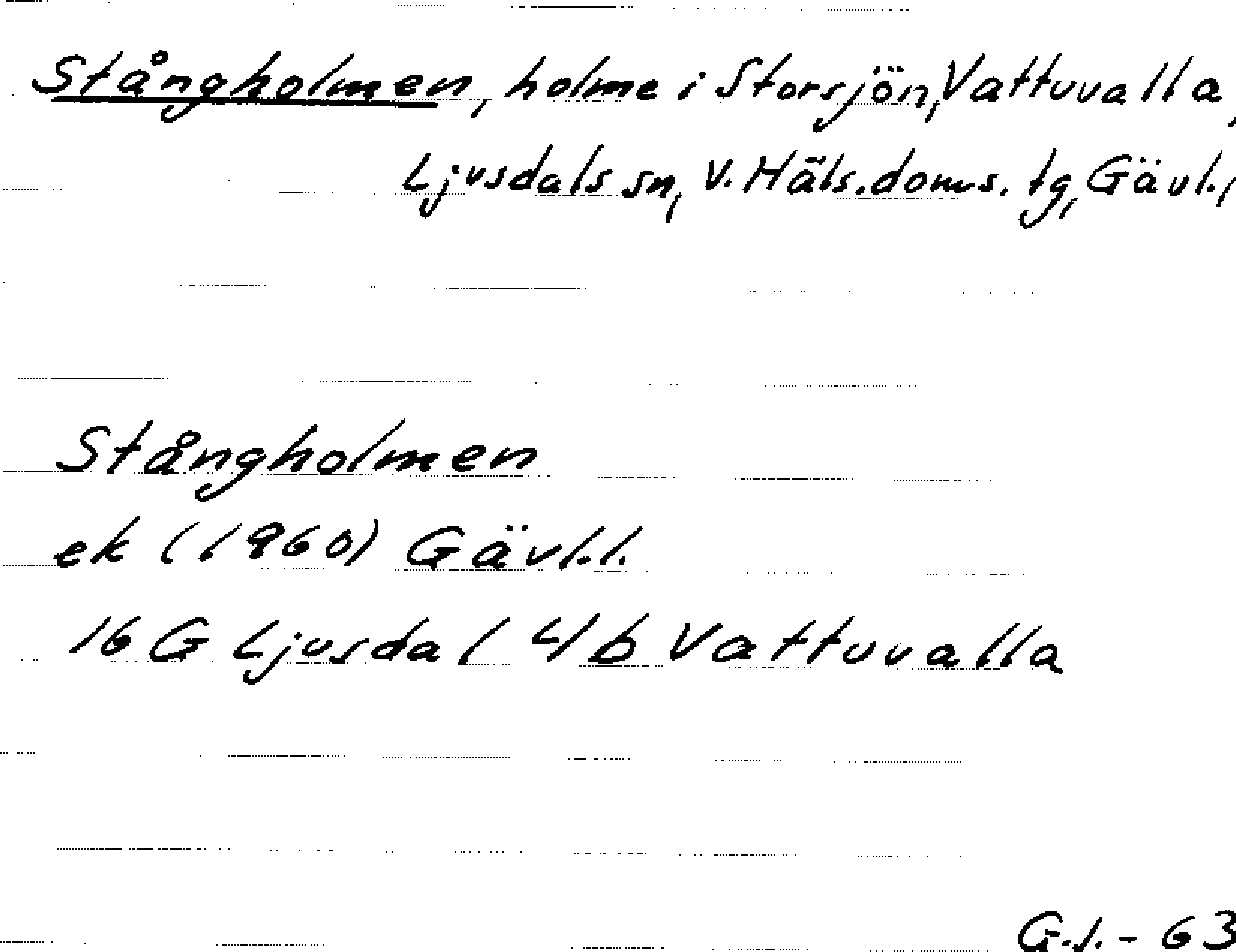 Stångholmen, holme i Storsjön, Vattuvalla,
Ljusdals sn, V. Häls. doms. tg, Gävl.,
Stångholmen
ek (1960) Gävl.l.
16 G Ljusdal 4/b Vattuvalla
G.J. - 63